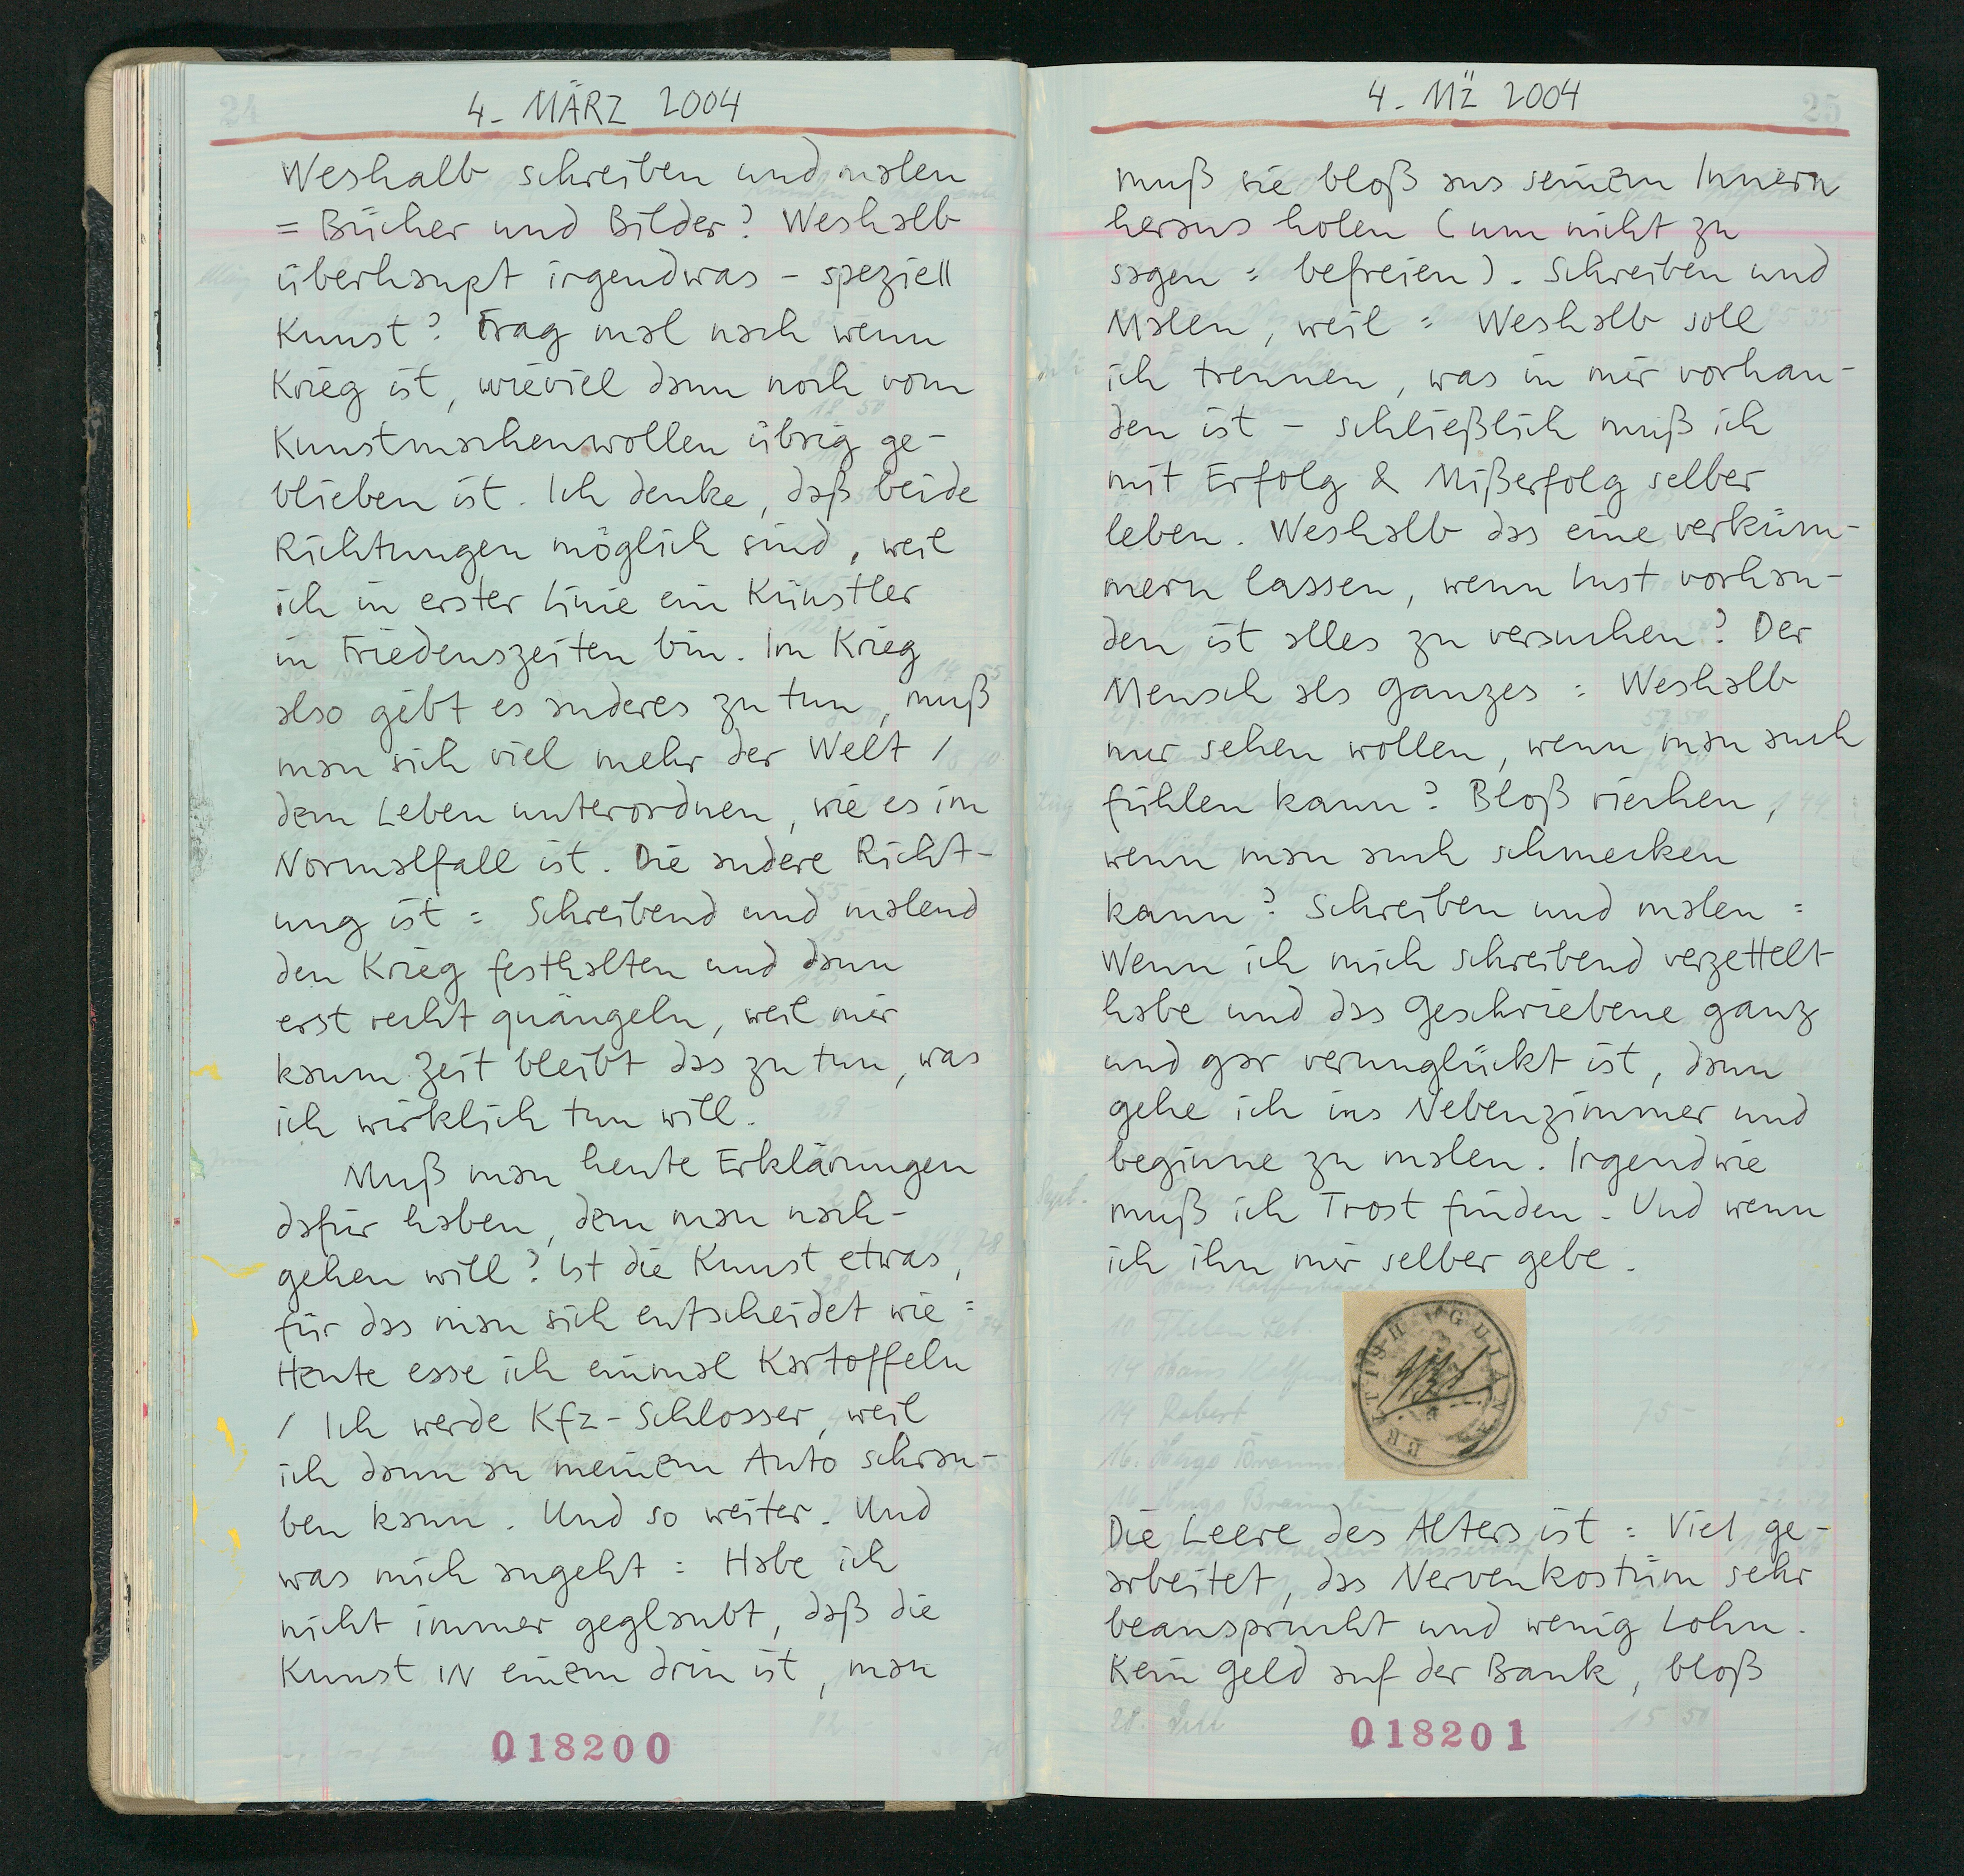 24
4. MÄRZ 2004
Weshalb schreiben und malen
= Bücher und Bilder? Weshalb
überhaupt irgendwas – speziell
Kunst? Frag mal nach wenn
Krieg ist, wieviel dann noch vom
Kunstmachenwollen übrig ge-
blieben ist. Ich denke, daß beide
Richtungen möglich sind, weil
ich in erster Linie ein Künstler
in Friedenszeiten bin. Im Krieg
also gibt es anderes zu tun, muß
man sich viel mehr der Welt /
dem Leben unterordnen, wie es im
Normalfall ist. Die andere Richt-
ung ist: Schreibend und malend
den Krieg festhalten und dann
erst recht quängeln, weil mir
kaum Zeit bleibt das zu tun, was
ich wirklich tun will.
Muß man heute Erklärungen
dafür haben, dem man nach-
gehen will? Ist die Kunst etwas,
für das man sich entscheidet wie:
Heute esse ich einmal Kartoffeln
/ Ich werde Kfz-Schlosser, weil
ich dann an meinem Auto schrau-
ben kann. Und so weiter. Und
was mich angeht: Habe ich
nicht immer geglaubt, daß die
Kunst IN einem drin ist, man
018200
25
4. MZ 2004
muß sie bloß aus seinem Innern
heraus holen (um nicht zu
sagen: befreien). Schreiben und
Malen, weil: Weshalb soll
ich trennen, was in mir vorhan-
den ist – schließlich muß ich
mit Erfolg & Mißerfolg selber
leben. Weshalb das eine verküm-
mern lassen, wenn Lust vorhan-
den ist alles zu versuchen? Der
Mensch als Ganzes: Weshalb
nur sehen wollen, wenn man auch
fühlen kann? Bloß riechen,
wenn man auch schmecken
kann? Schreiben und malen:
Wenn ich mich schreibend verzettelt
habe und das Geschriebene ganz
und gar verunglückt ist, dann
gehe ich ins Nebenzimmer und
beginne zu malen. Irgendwie
muß ich Trost finden. Und wenn
ich ihn mir selber gebe.
Die Leere des Alters ist: Viel ge-
arbeitet, das Nervenkostüm sehr
beansprucht und wenig Lohn.
Kein Geld auf der Bank, bloß
018201